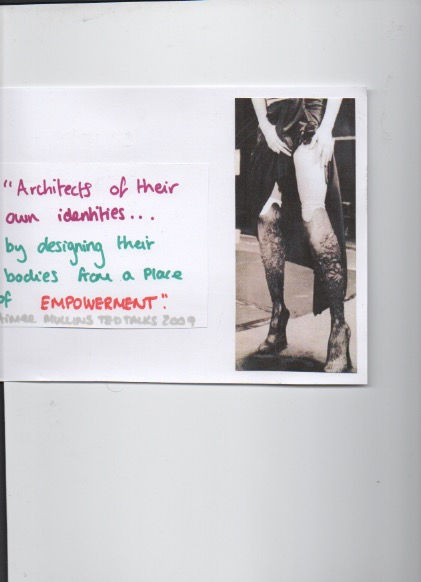 "Architects of their
own identities...
by designing their
bodies from a Place
of EMPOWERMENT".
Aimee MULLINS TED TALKS 2009